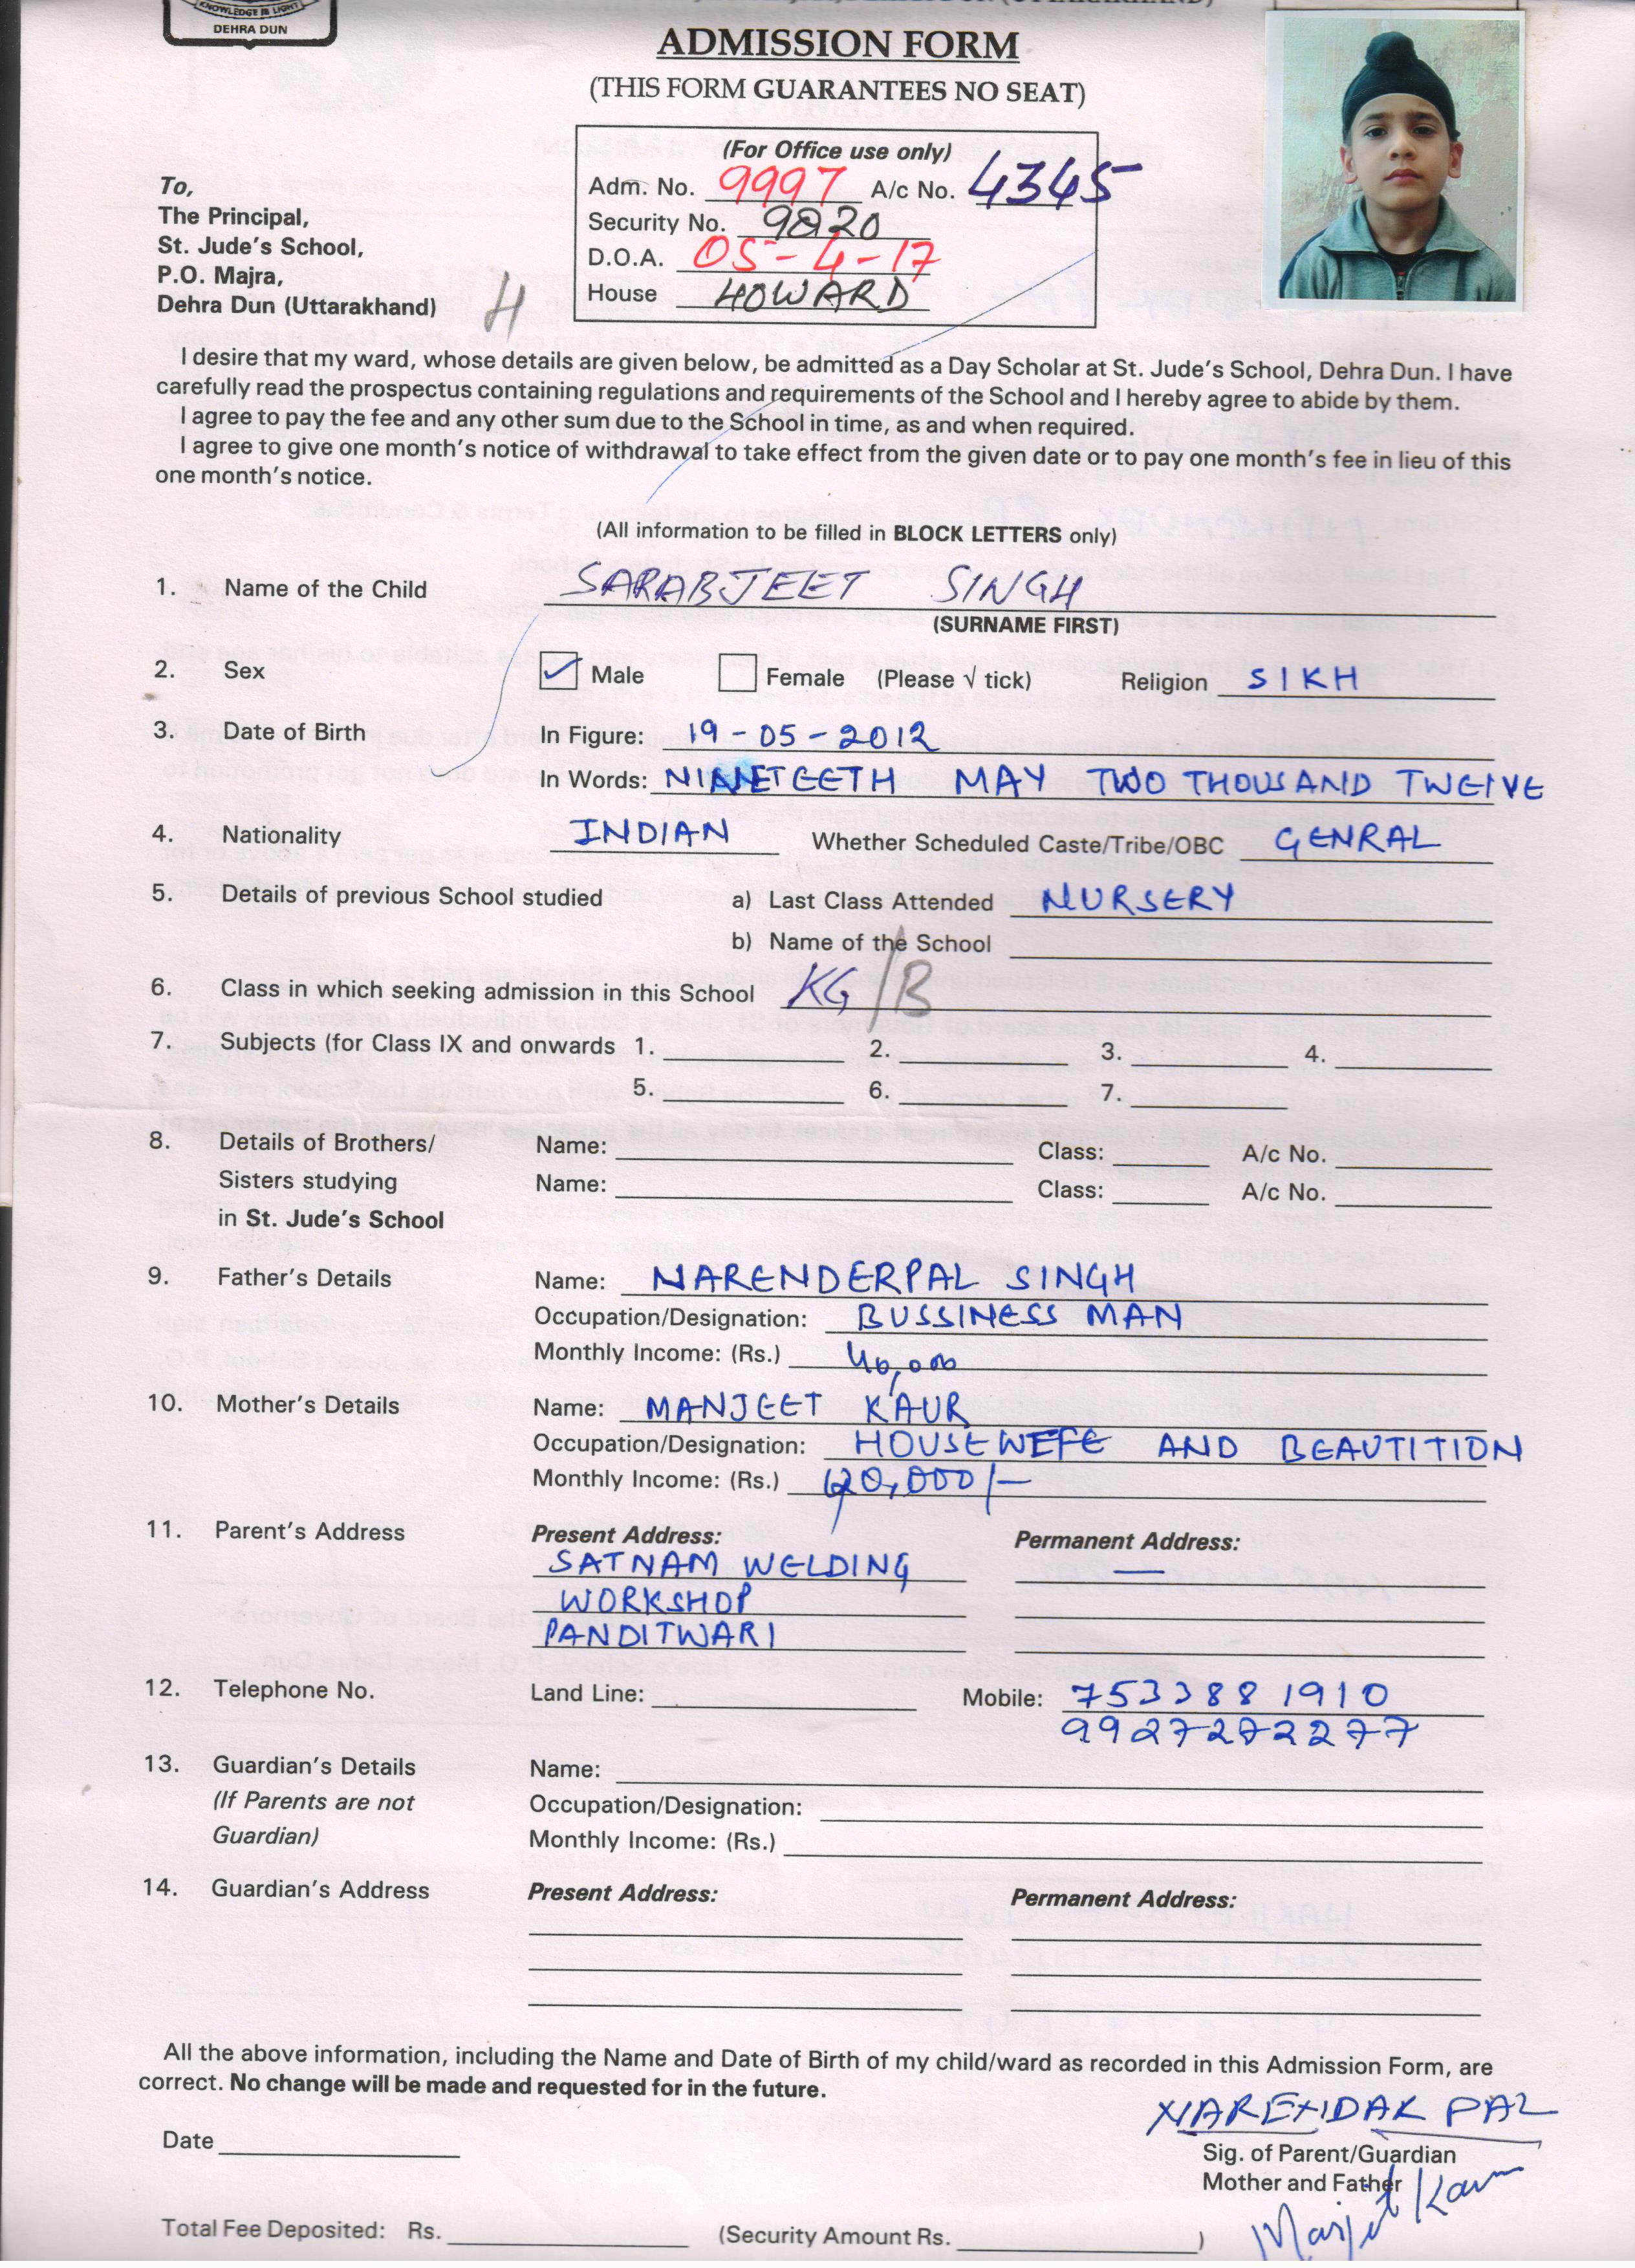 KNOWLEDGE IS LIGHT
DEHRA DUN
ADMISSION FORM
(THIS FORM GUARANTEES NO SEAT)
(For Office use only)
Adm. No. 9997 A/c No. 4345
Security No. 9820
D.O.A. 05-4-17
House HOWARD
To,
The Principal,
St. Jude's School,
P.O. Majra,
Dehra Dun (Uttarakhand)
H
I desire that my ward, whose details are given below, be admitted as a Day Scholar at St. Jude's School, Dehra Dun. I have
carefully read the prospectus containing regulations and requirements of the School and I hereby agree to abide by them.
I agree to pay the fee and any other sum due to the School in time, as and when required.
I agree to give one month's notice of withdrawal to take effect from the given date or to pay one month's fee in lieu of this
one month's notice.
(All information to be filled in BLOCK LETTERS only)
1. Name of the Child SARABJEET SINGH
(SURNAME FIRST)
2. Sex ✓ Male Female (Please √ tick) Religion SIKH
3. Date of Birth In Figure: 19-05-2012
In Words: NINETEETH MAY TWO THOUSAND TWEIVE
4. Nationality INDIAN Whether Scheduled Caste/Tribe/OBC GENRAL
5. Details of previous School studied a) Last Class Attended NURSERY
b) Name of the School
6. Class in which seeking admission in this School KG/B
7. Subjects (for Class IX and onwards 1. 2. 3. 4.
5. 6. 7.
8. Details of Brothers/ Name: Class: A/c No.
Sisters studying Name: Class: A/c No.
in St. Jude's School
9. Father's Details Name: NARENDERPAL SINGH
Occupation/Designation: BUSSINESS MAN
Monthly Income: (Rs.) 40,000
10. Mother's Details Name: MANJEET KAUR
Occupation/Designation: HOUSEWEFE AND BEAUTITION
Monthly Income: (Rs.) 20,000/-
11. Parent's Address Present Address: Permanent Address:
SATNAM WELDING —
WORKSHOP
PANDITWARI
12. Telephone No. Land Line: Mobile: 7533881910
9927272277
13. Guardian's Details Name:
(If Parents are not Occupation/Designation:
Guardian) Monthly Income: (Rs.)
14. Guardian's Address Present Address: Permanent Address:
All the above information, including the Name and Date of Birth of my child/ward as recorded in this Admission Form, are
correct. No change will be made and requested for in the future.
NARENDAR PAL
Date
Sig. of Parent/Guardian
Mother and Father
Manjit Kaur
Total Fee Deposited: Rs. (Security Amount Rs. )